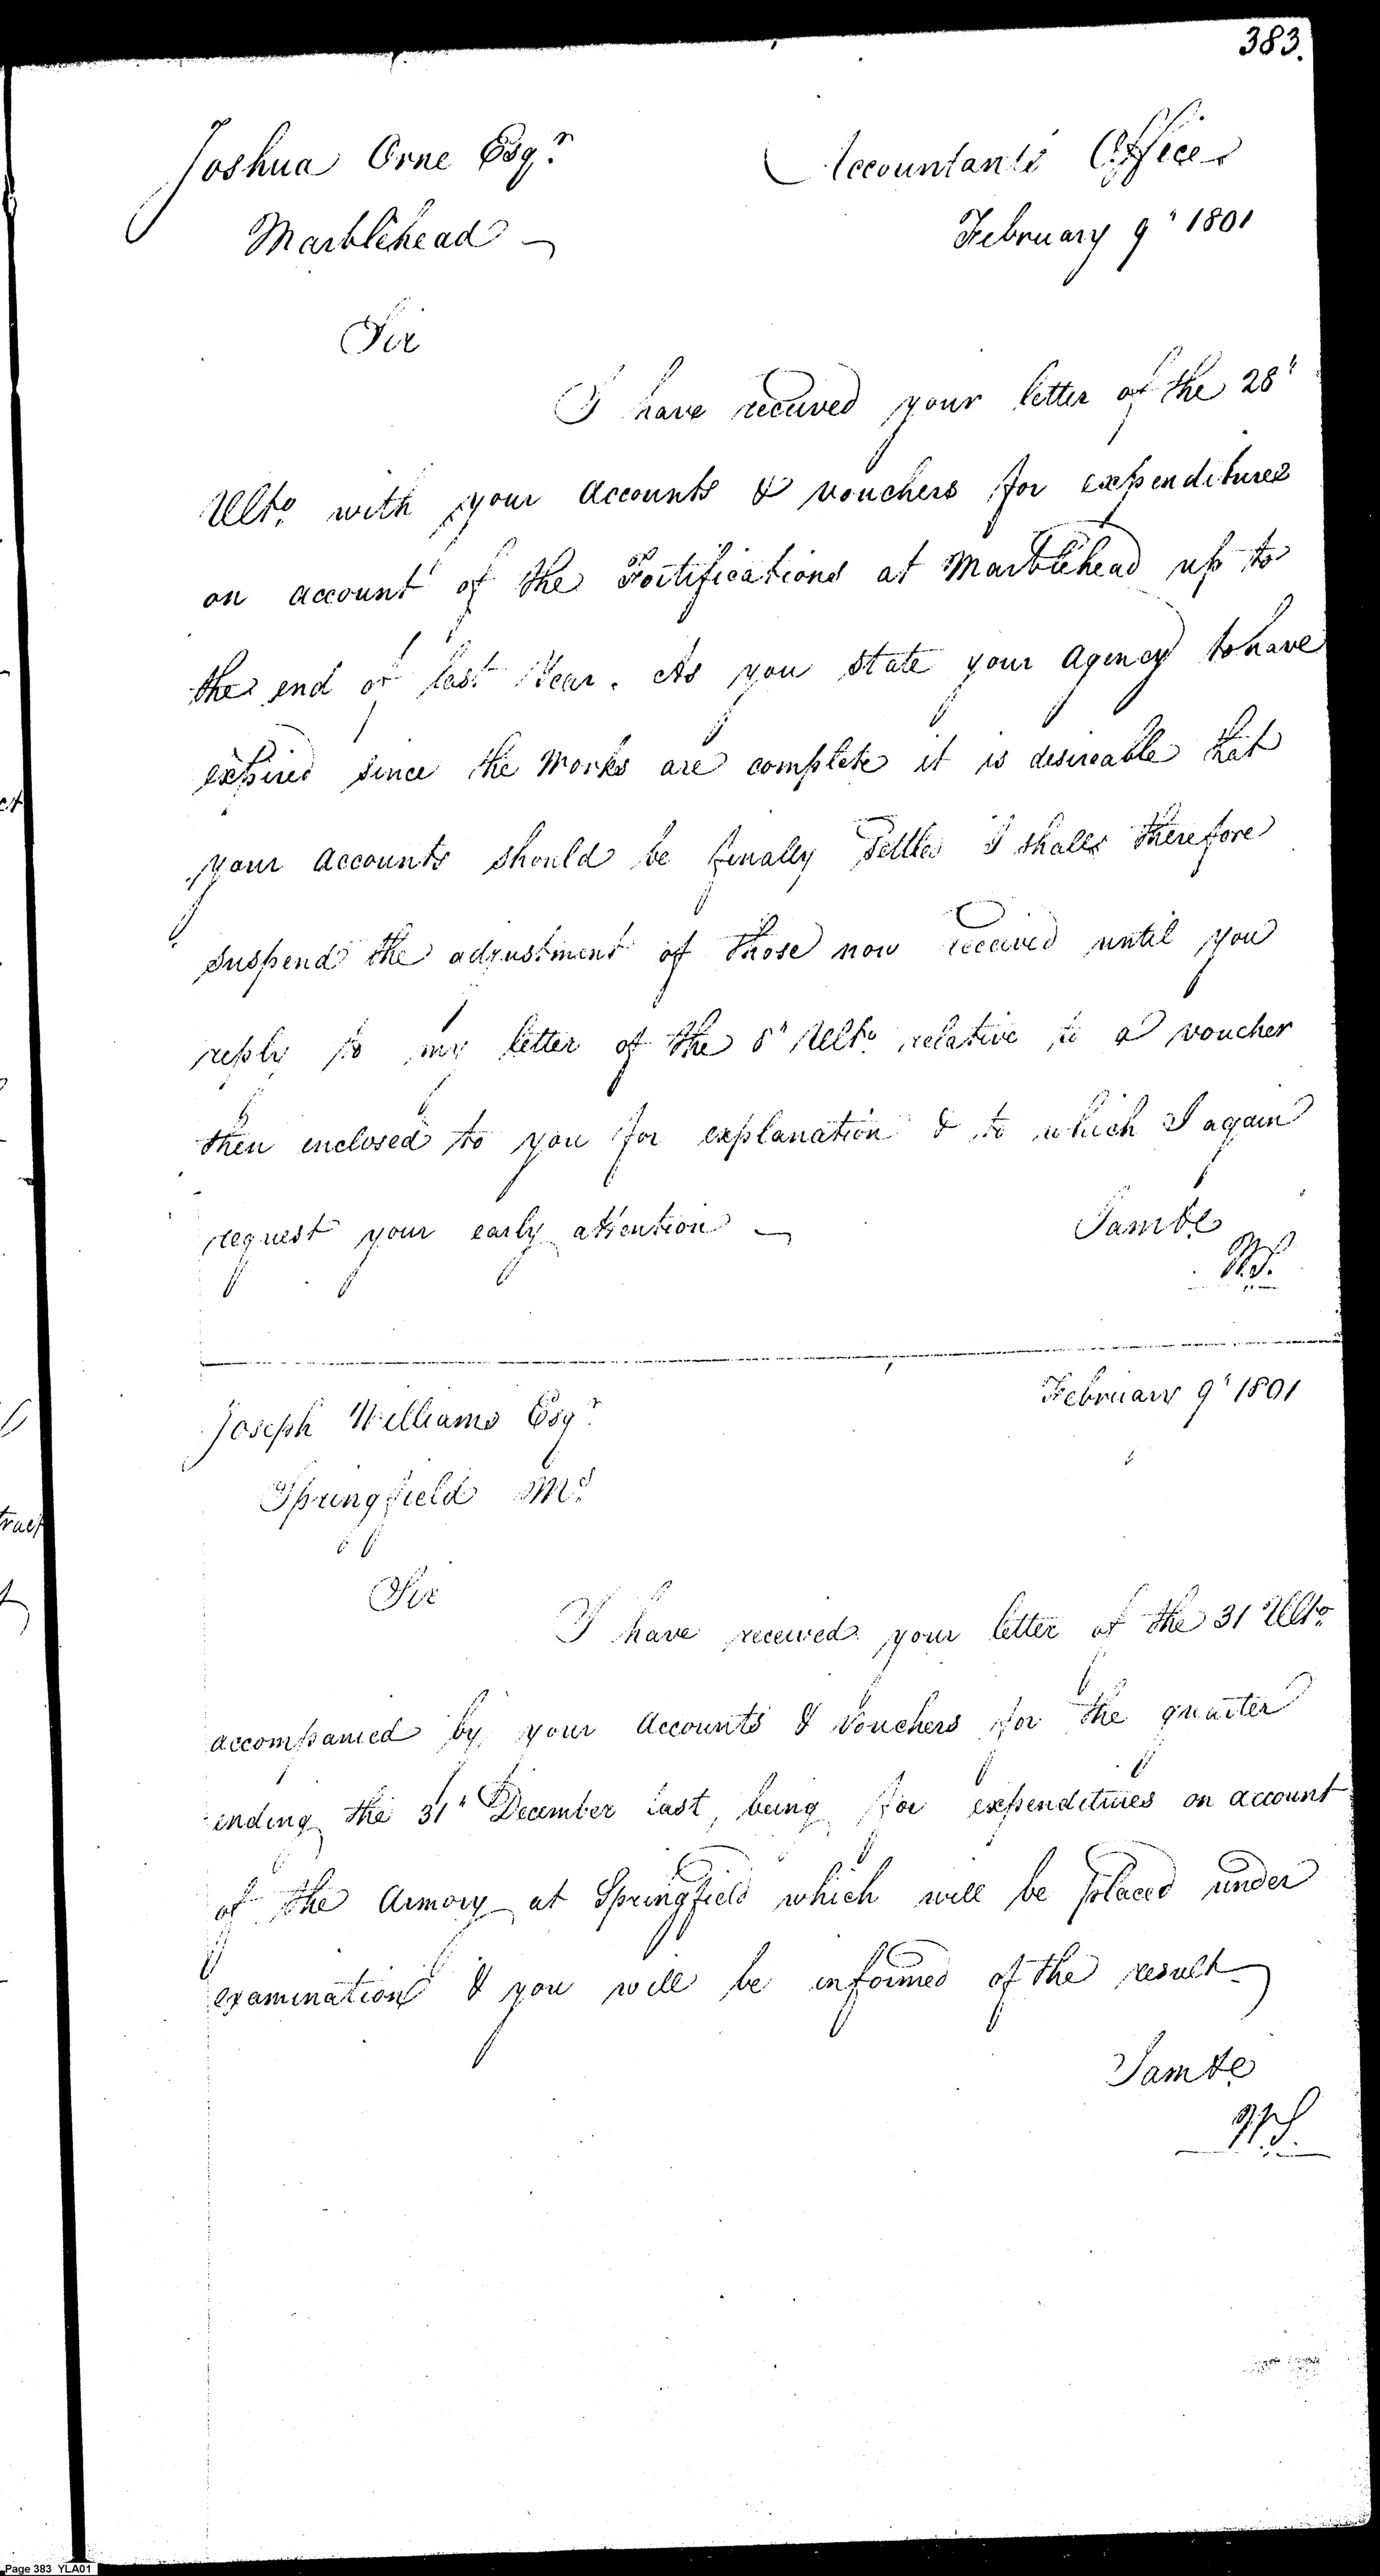 383.
Joshua Orne Esqr.
Accountants Office
Marblehead
February 9" 1801
Sir
I have received your letter of the 28"
Ulto. with your Accounts & vouchers for expenditures
on account of the Fortifications at Marblehead up to
the end of last Year. As you state your Agency to have
expired since the Works are complete it is desireable that
your accounts should be finally settled I shall therefore
suspend the adjustment of those now received until you
reply to my letter of the 8" Ulto. relative to a voucher
then enclosed to you for explanation & to which I again
request your early attention
I am &c
WS.
February 9" 1801
Joseph Williams Esqr.
Springfield Ms.
Sir
I have received your letter of the 31 Ulto.
accompanied by your Accounts & Vouchers for the quarter
ending the 31" December last, being for expenditures on account
of the Armory at Springfield which will be placed under
examination & you will be informed of the result
I am &c
WS.
Page 383 YLA01